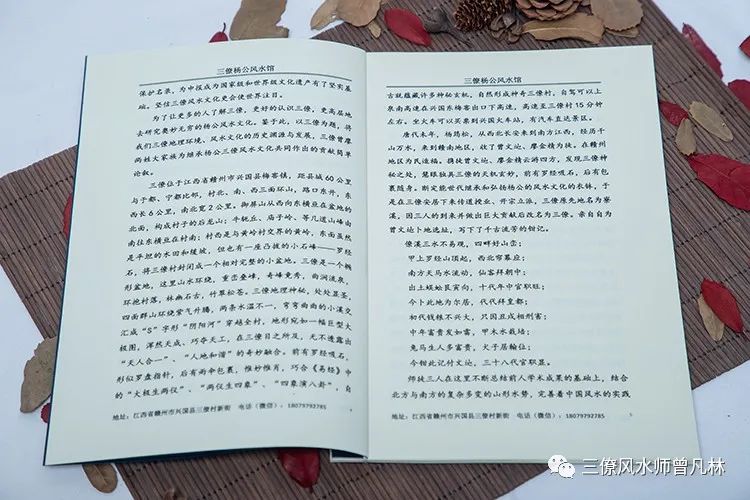 三僚杨公风水馆
保护名录，为申报成为国家级和世界级文化遗产有了坚实基
础。坚信三僚风水文化更会使世界注目。
为了让更多的人了解三僚，更好的认识三僚，更高层地
去研究奥妙无穷的杨公风水文化。鉴于此，以三僚为题，将
我们三僚地理环境、风水文化的历史渊源与发展，三僚曾廖
两姓大家族为继承杨公三僚风水文化共同作出的贡献简单
论叙。
三僚位于江西省赣州市兴国县梅窖镇，距县城 60 公里
与于都、宁都比邻，村北、南、西三面环山，路口东开，东
西长 6 公里，南北宽 2 公里。御屏山从西向东横亘在盆地的
北面，构成村子的后龙山；牛轭丘、庙子岭、等几道山峰由
南往东横亘在村南；村西是与黄岭村交界的黄岭，东面虽然
是平坦的水田和缓坡，但也有一座凸拔的小石峰——罗经
石，将三僚村封闭成一个相对完整的小盆地。三僚是一个椭
形盆地，这里山水环绕，重峦叠嶂，奇峰竞秀，曲涧流泉，
环抱村落，林幽石古，竹翠松苍。三僚地理神秘，处处显圣，
四面群山环绕紫气升腾，两条水温不一，弯弯曲曲的小溪交
汇成“S”字形“阴阳河”穿越全村，地形宛如一幅巨型大
极图，浑然天成、巧夺天工，在三僚目之所及，无不透露出
“天人合一”、“人地和谐”的奇妙融合。前有罗经吸石，
形似罗盘指针，后有雨伞包裹，惟妙惟肖，巧合《易经》中
的“大极生两仪”、“两仪生四象”、“四象演八卦”，自
地址：江西省赣州市兴国县三僚村新街 电话（微信）：18079792785
三僚杨公风水馆
古就蕴藏许多神秘玄机，自然形成神奇三僚村，自驾可以上
泉南高速在兴国东梅窖出口下高速，高速至三僚村 15 分钟
左右。坐火车可以买票到兴国火车站，有汽车直达景区。
唐代末年，杨筠松，从西北长安来到南方江西，经历千
山万水，来到赣南地区，收了曾文迪、廖金精为徒。在赣州
地区为民造福。携徒曾文迪、廖金精云游四方、发现三僚神
秘之处，慧眼独具三僚的天机玄妙，前有罗经吸石，后有包
裹随身。断定能世代继承和弘扬杨公的风水文化的衣钵，于
是在三僚安居下来传道授业、开宗立派，三僚原先地名为寮
溪，因三人的到来并做出巨大贡献后改名为三僚。亲自自为
曾文迪卜地选址，写下了千古流芳的钳记。
僚溪三水不易观，四畔好山峦；
甲上罗经山顶起，西北廉幕应；
南方天马水流动，仙客拜朝中；
出土蜈蚣艮寅向，十代年中官职旺；
今卜此地为尔居，代代拜皇都；
初代钱粮不兴大，只因丑戍相刑害；
中年富贵发如雷，甲木水栽培；
兔马生人多富贵，犬子居翰位；
今钳此记付文迪，三十八代官职显。
师徒三人在这里不断总结前人学术成果的基础上，结合
北方与南方的复杂多变的山形水势，完善着中国风水的实践
地址：江西省赣州市兴国县三僚村新街 电话（微信）：18079792785
三僚风水师曾凡林